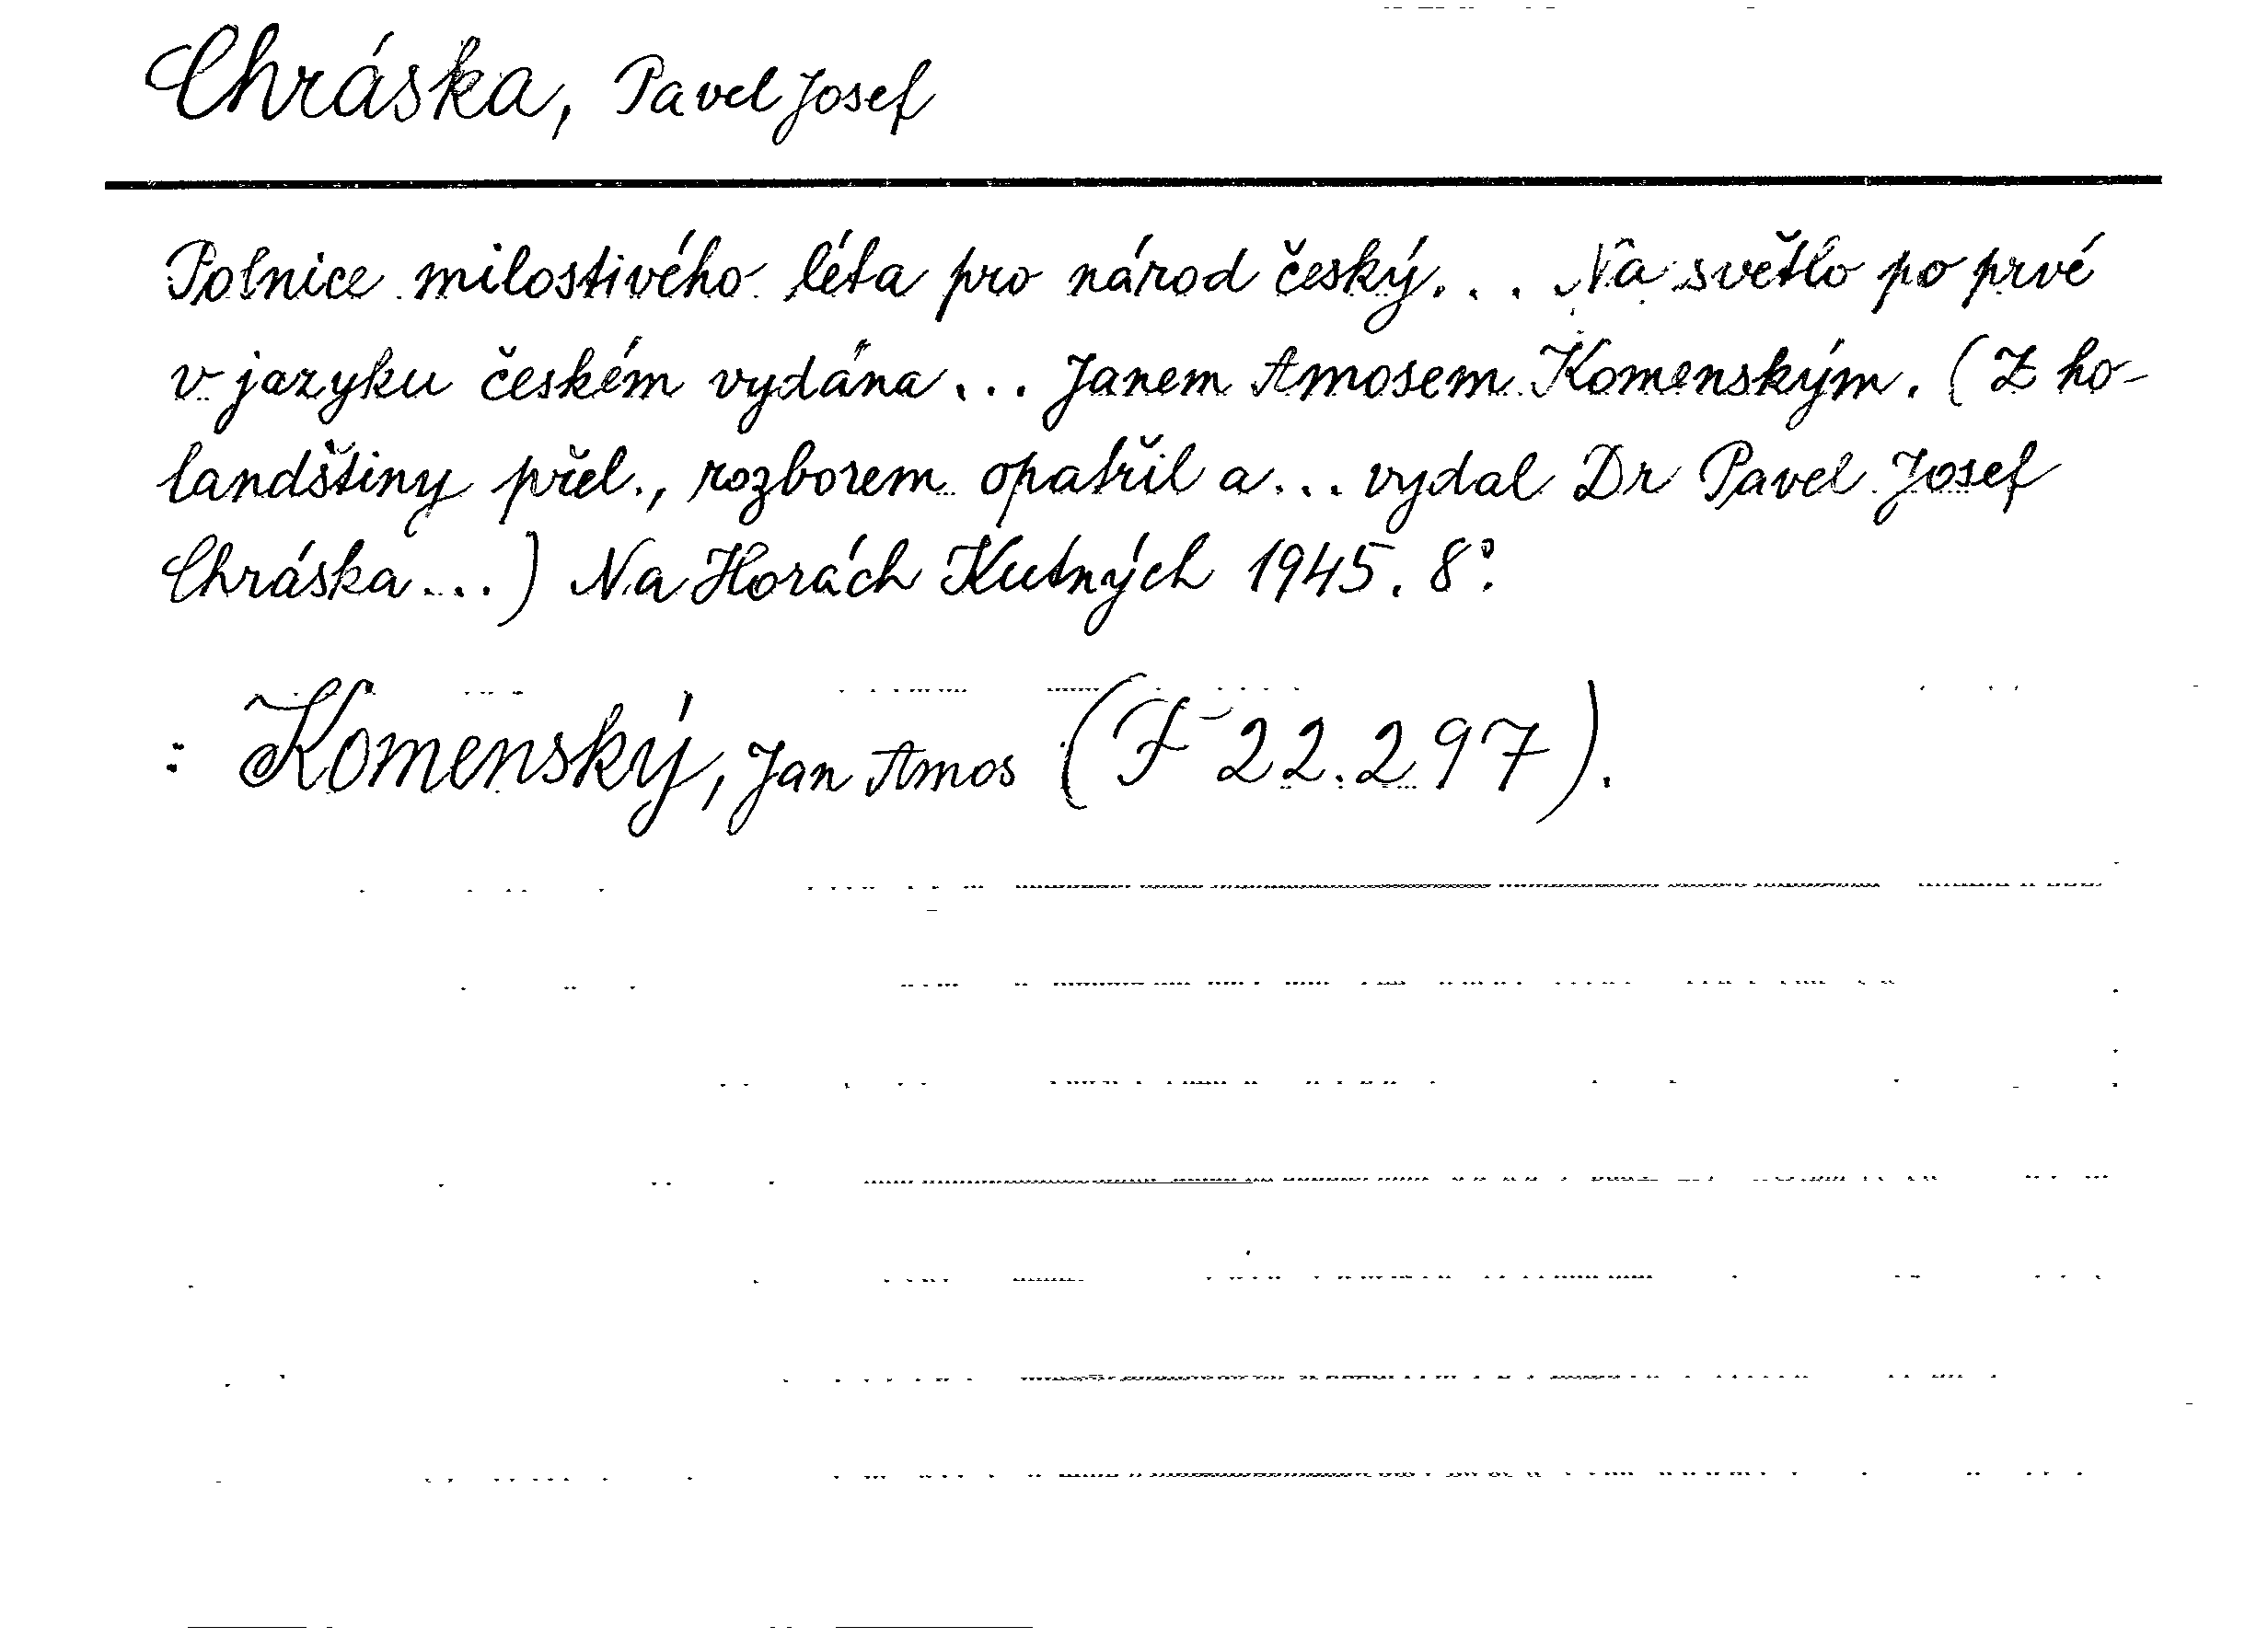 Chráska, Pavel Josef
Polnice milostivého léta pro národ český... Na světlo po prvé
v jazyku českém vydána... Janem Amosem Komenským. (Z ho-
landštiny přel., rozborem opatřil a... vydal Dr Pavel Josef
Chráska...) Na Horách Kutných 1945. 8°.
: Komenský, Jan Amos (F 22.297).